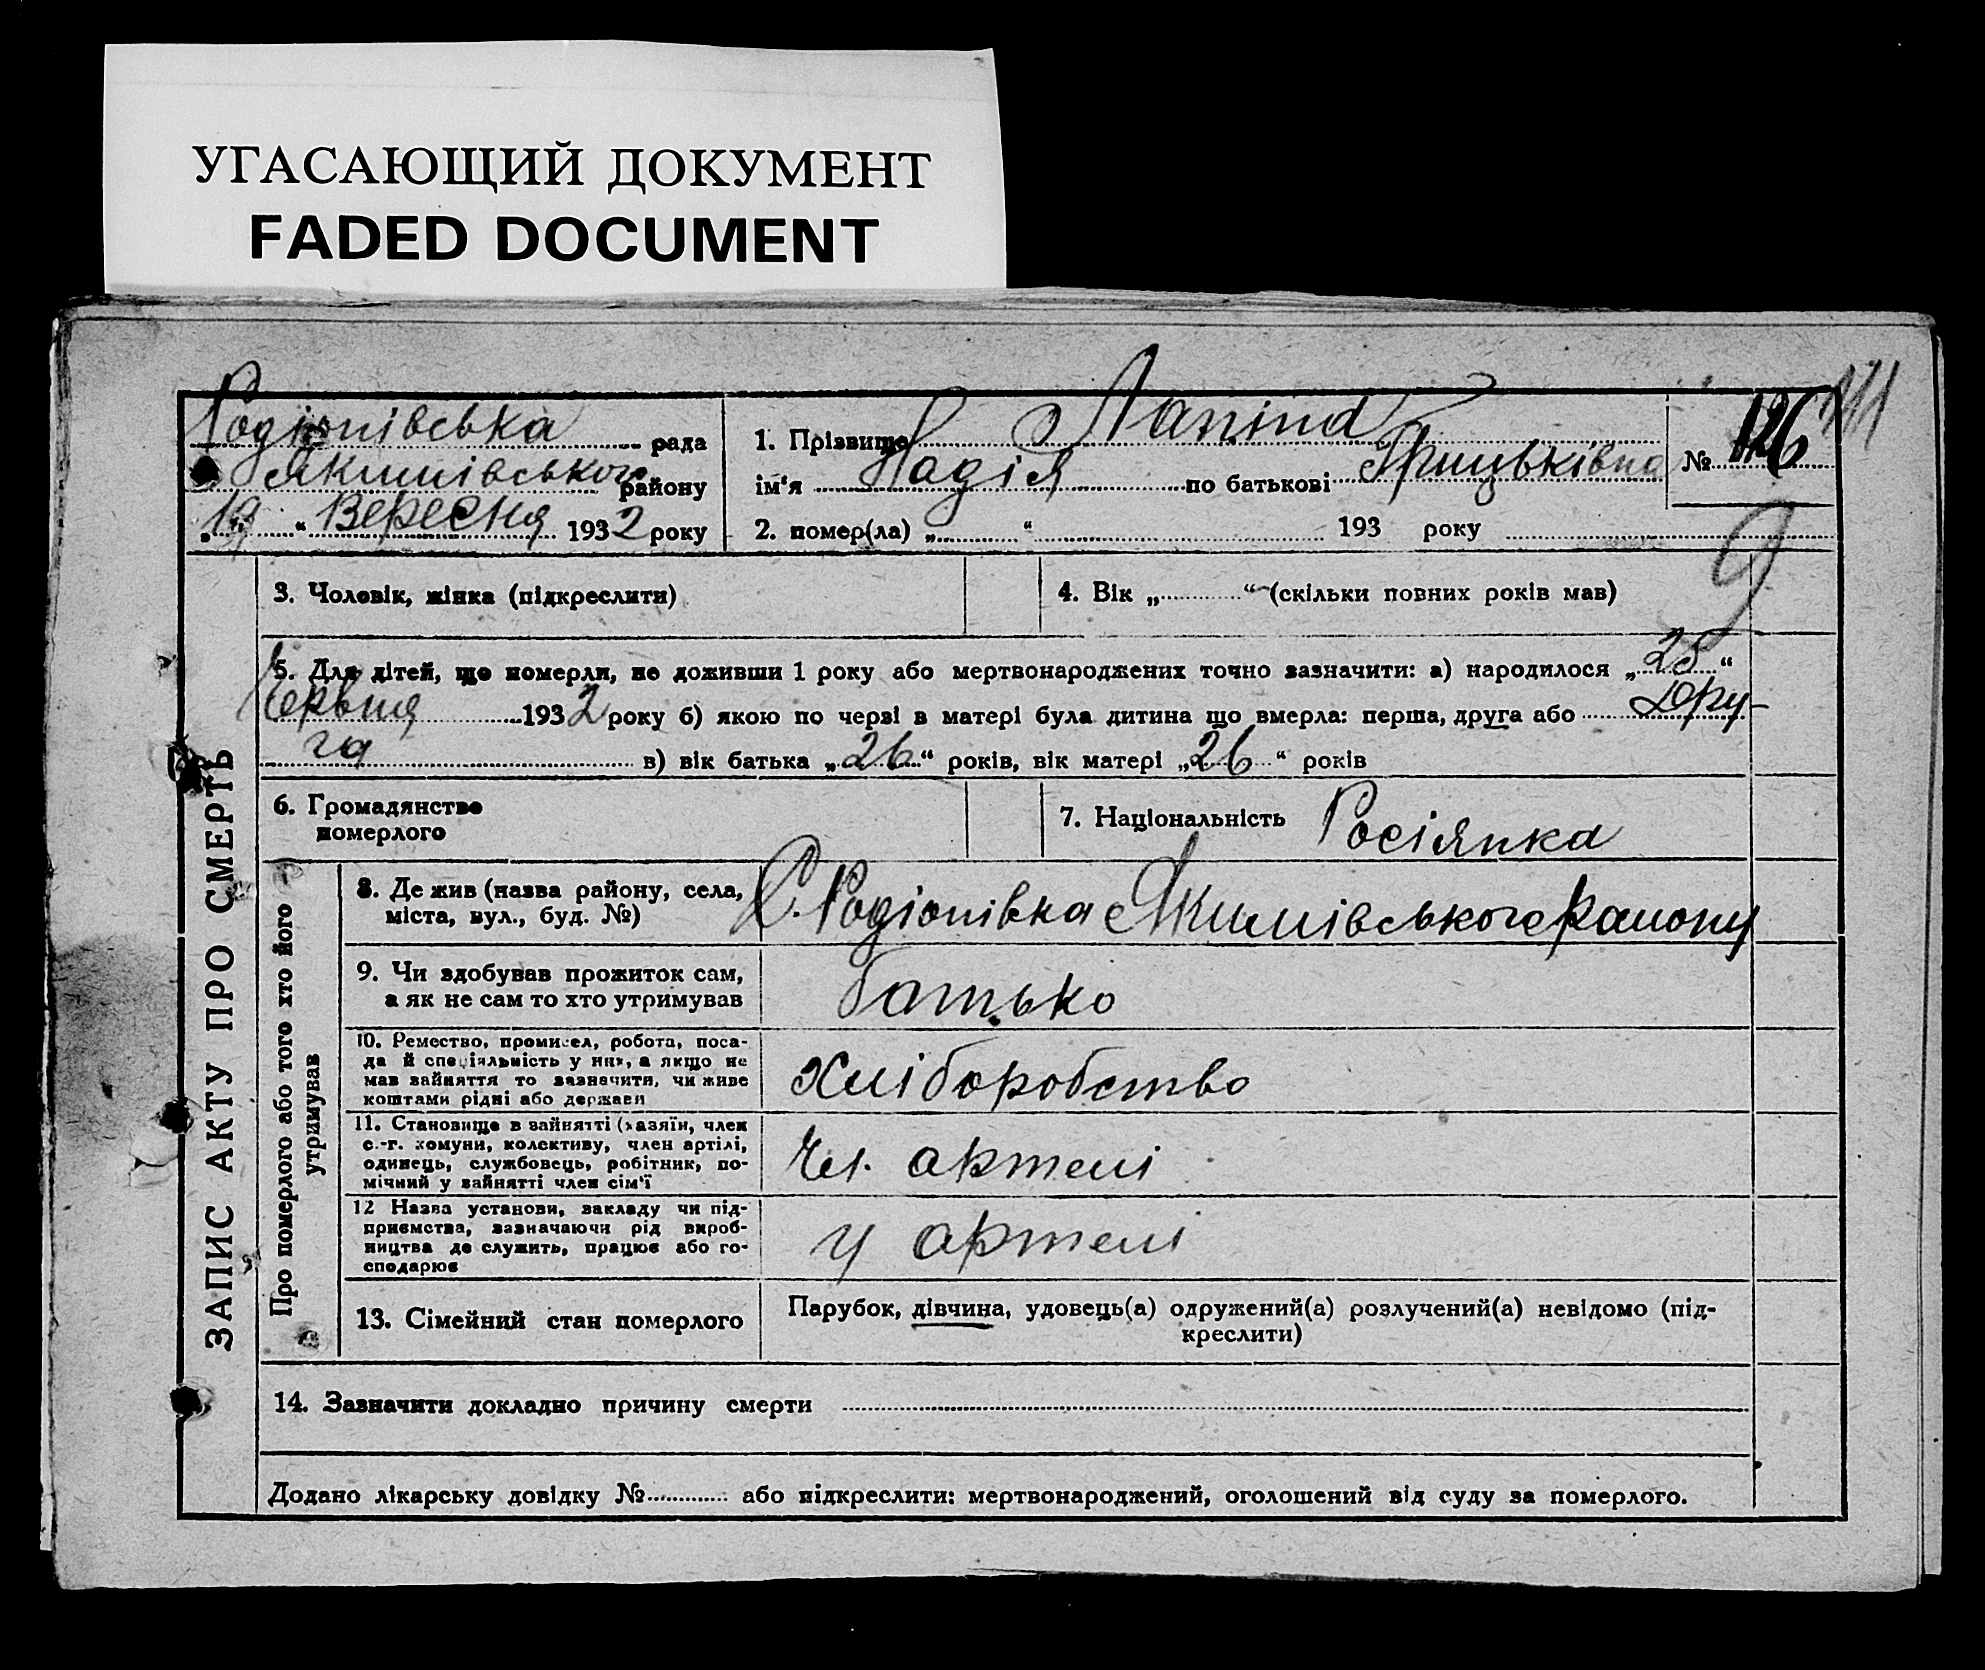 УГАСАЮЩИЙ ДОКУМЕНТ
FADED DOCUMENT
Родіонівська рада
Якимівського району
„19“ Вересня 1932 року
1. Прізвище Лапіна
ім'я Надія по батькові Грицьківна
2. помер(ла) „ “ 193 року
№ 126
3. Чоловік, жінка (підкреслити)
4. Вік „ “ (скільки повних років мав)
5. Для дітей, що померли, не доживши 1 року або мертвонароджених точно зазначити: а) народилося „25“
Червня 1932 року б) якою по черві в матері була дитина що вмерла: перша, друга або Дру-
га в) вік батька „26“ років, вік матері „26“ років
6. Громадянство
померлого
7. Національність Росіянка
ЗАПИС АКТУ ПРО СМЕРТЬ
Про померлого або того хто його
утримував
8. Де жив (назва району, села,
міста, вул., буд. №)
С. Родіонівка Якимівського району
9. Чи здобував прожиток сам,
а як не сам то хто утримував
батько
10. Ремество, промисел, робота, поса-
да й спеціяльність у них, а якщо не
мав зайняття то зазначити, чи живе
коштами рідні або держави
Хліборобство
11. Становище в зайнятті (хазяїн, член
с.-г. комуни, колективу, член артілі,
одинець, службовець, робітник, по-
мічний у зайнятті член сім'ї
Чл. артелі
12 Назва установи, закладу чи під-
приємства, зазначаючи рід вироб-
ництва де служить, працює або го-
сподарює
у артелі
13. Сімейний стан померлого
Парубок, дівчина, удовець(а) одружений(а) розлучений(а) невідомо (під-
креслити)
14. Зазначити докладно причину смерти
Додано лікарську довідку № або підкреслити: мертвонароджений, оголошений від суду за померлого.